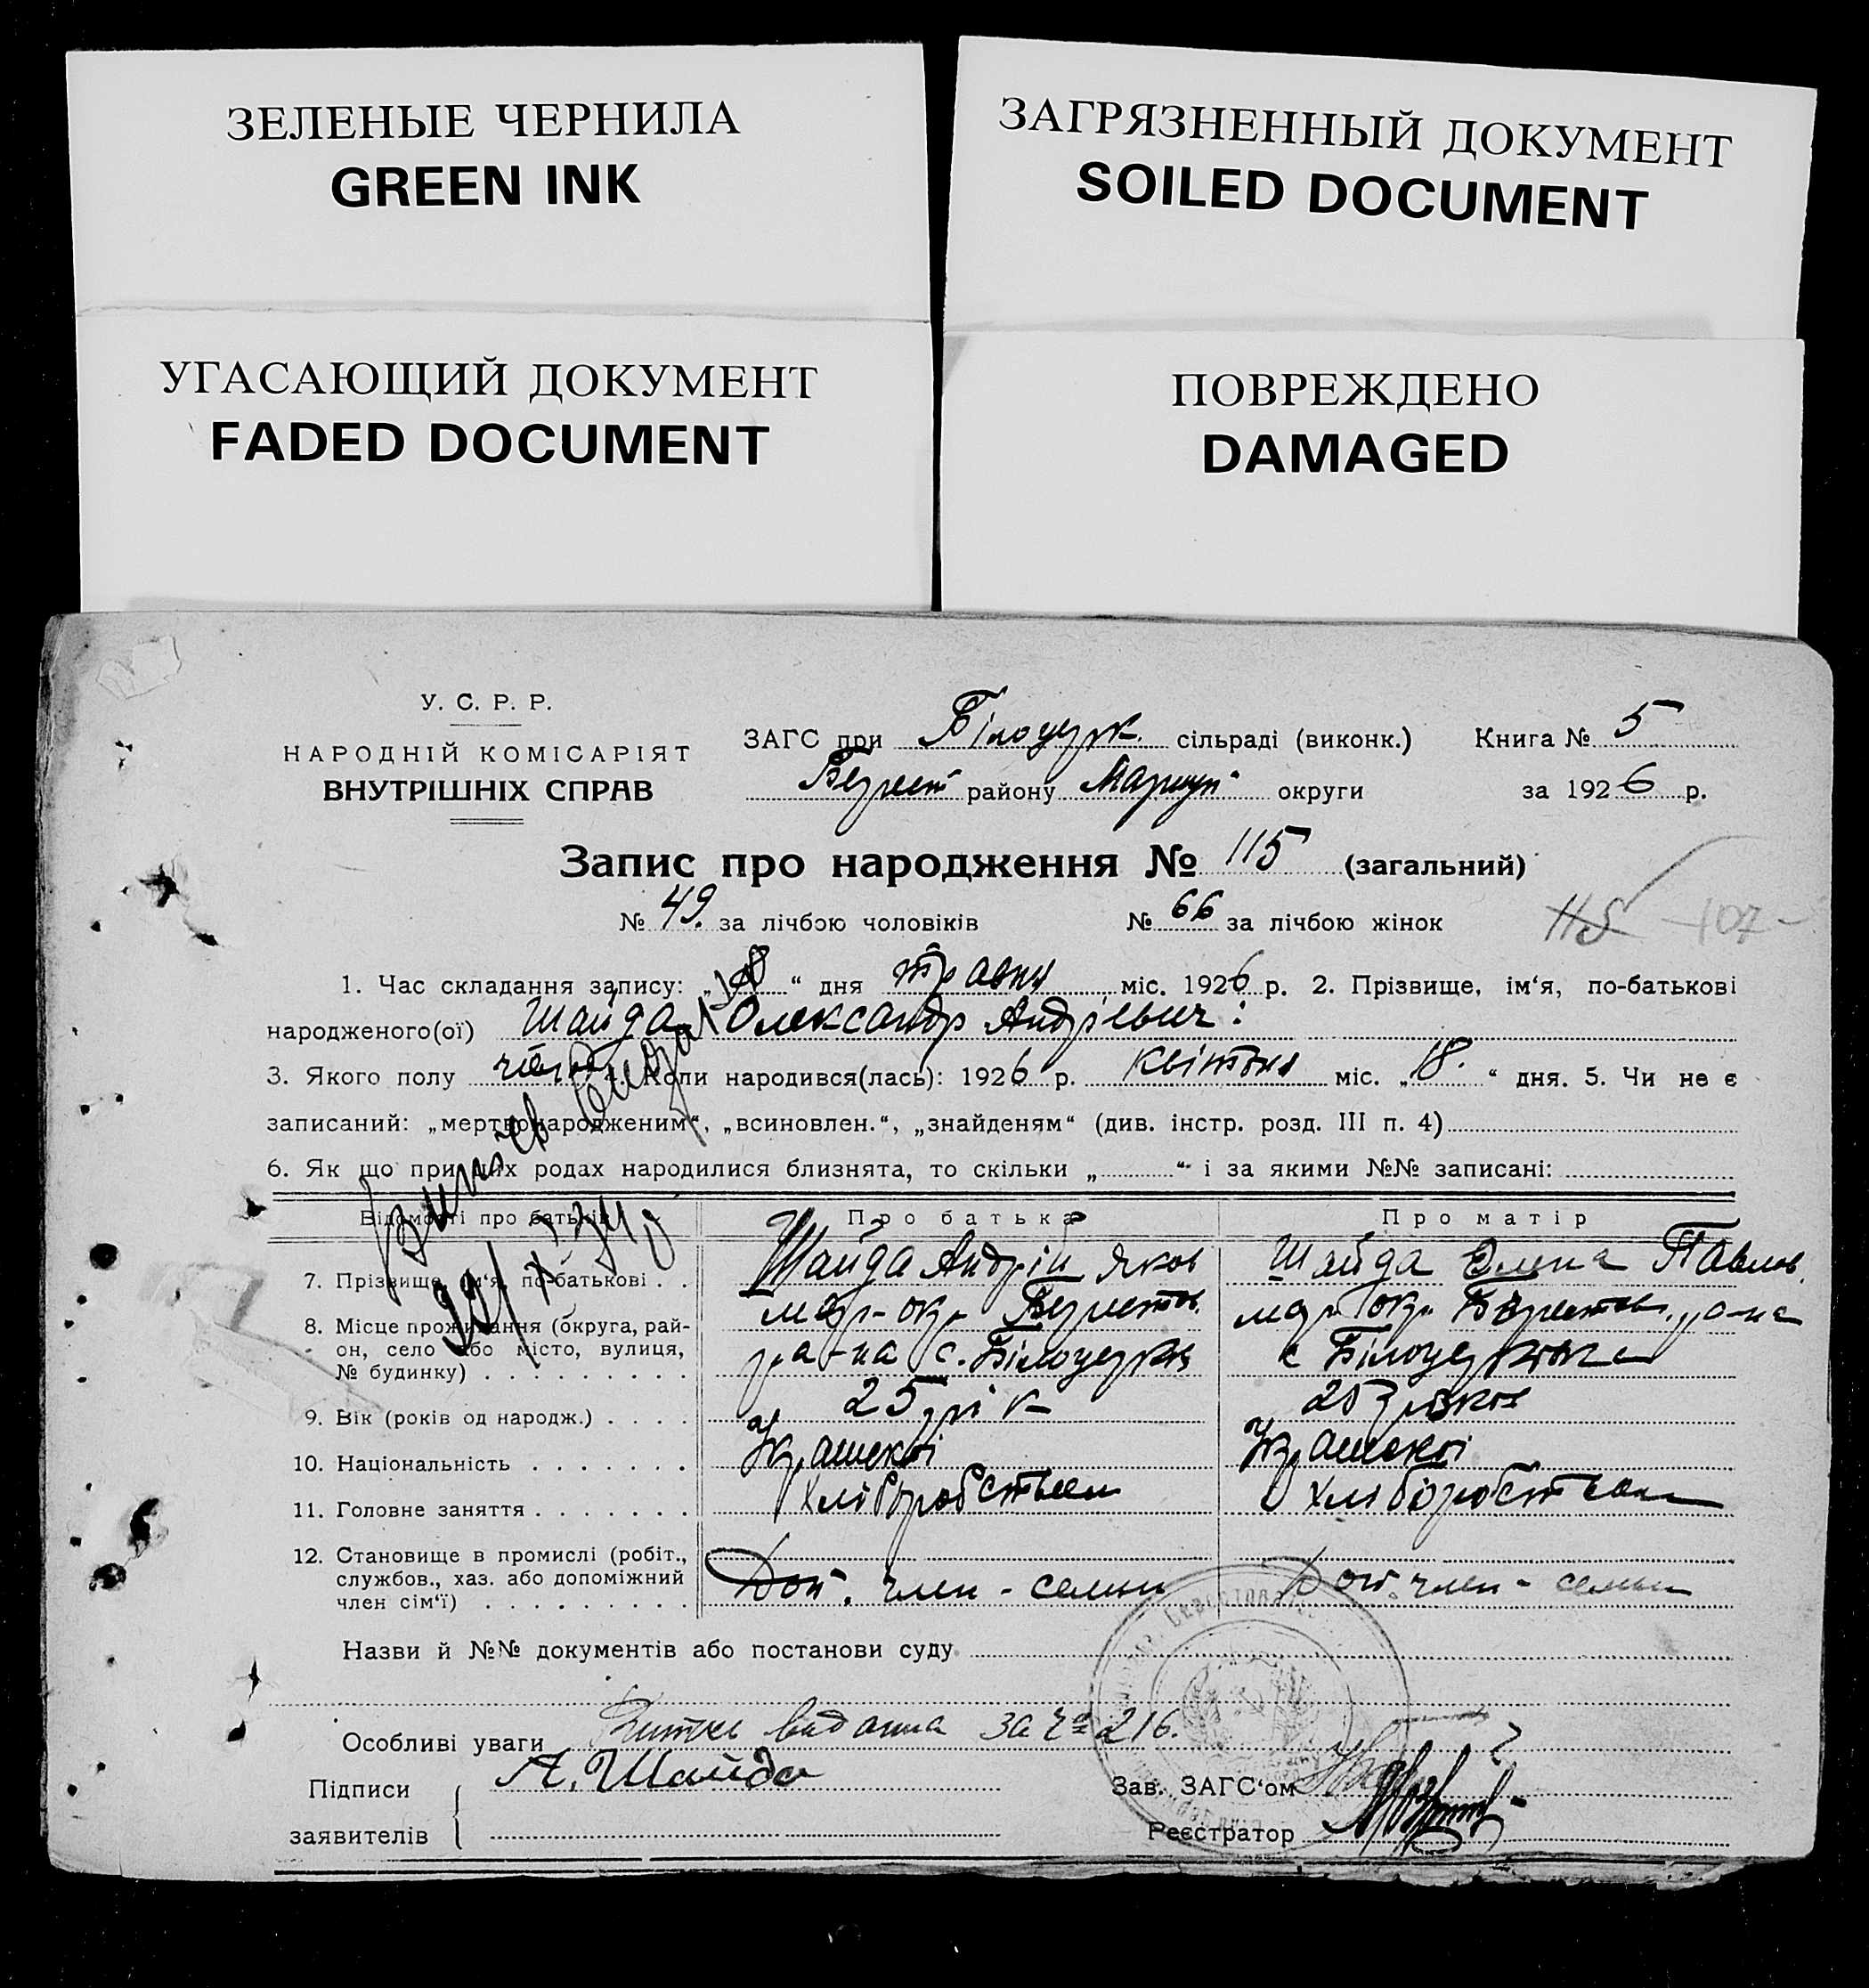 ЗЕЛЕНЫЕ ЧЕРНИЛА
GREEN INK
ЗАГРЯЗНЕННЫЙ ДОКУМЕНТ
SOILED DOCUMENT
УГАСАЮЩИЙ ДОКУМЕНТ
FADED DOCUMENT
ПОВРЕЖДЕНО
DAMAGED
У. С. Р. Р.
НАРОДНІЙ КОМІСАРІЯТ
ВНУТРІШНІХ СПРАВ
ЗАГС при Білоцерк. сільраді (виконк.) Книга № 5
району Маріуп округи за 1926 р.
Запис про народження № 115 (загальний)
№ 49. за лічбою чоловіків № 66 за лічбою жінок
115 107
1. Час складання запису: „18“ дня травня міс. 1926 р. 2. Прізвище, ім‘я, по-батькові
народженого(ої) Шайда Олександр Андрієвич
3. Якого полу 4. Коли народився(лась): 1926 р. квітня міс. „18.“ дня. 5. Чи не є
записаний: „мертвонародженим“, „всиновлен.“, „знайденям“ (див. інстр. розд. III п. 4)
6. Як що при цих родах народилися близнята, то скільки „ “ і за якими №№ записані:
Відомості про батьків Про батька Про матір
7. Прізвище, ім‘я, по-батькові . . Шайда Андрій Яков Шайда Олена Павлов.
8. Місце проживання (округа, рай-
он, село або місто, вулиця,
№ будинку) . . . . . . . . . р-на с. Білоцерків
9. Вік (років од народж.) . . . . 25 рік
10. Національність . . . . . . .
11. Головне заняття . . . . . . . хліборобством хліборобством
12. Становище в промислі (робіт.,
службов., хаз. або допоміжний
член сім‘ї) . . . . . . . . . Доп. член - семьи Доп член - семьи
Назви й №№ документів або постанови суду
Особливі уваги видана за № 216.
Підписи А. Шайда Зав. ЗАГС‘ом
заявителів Реєстратор